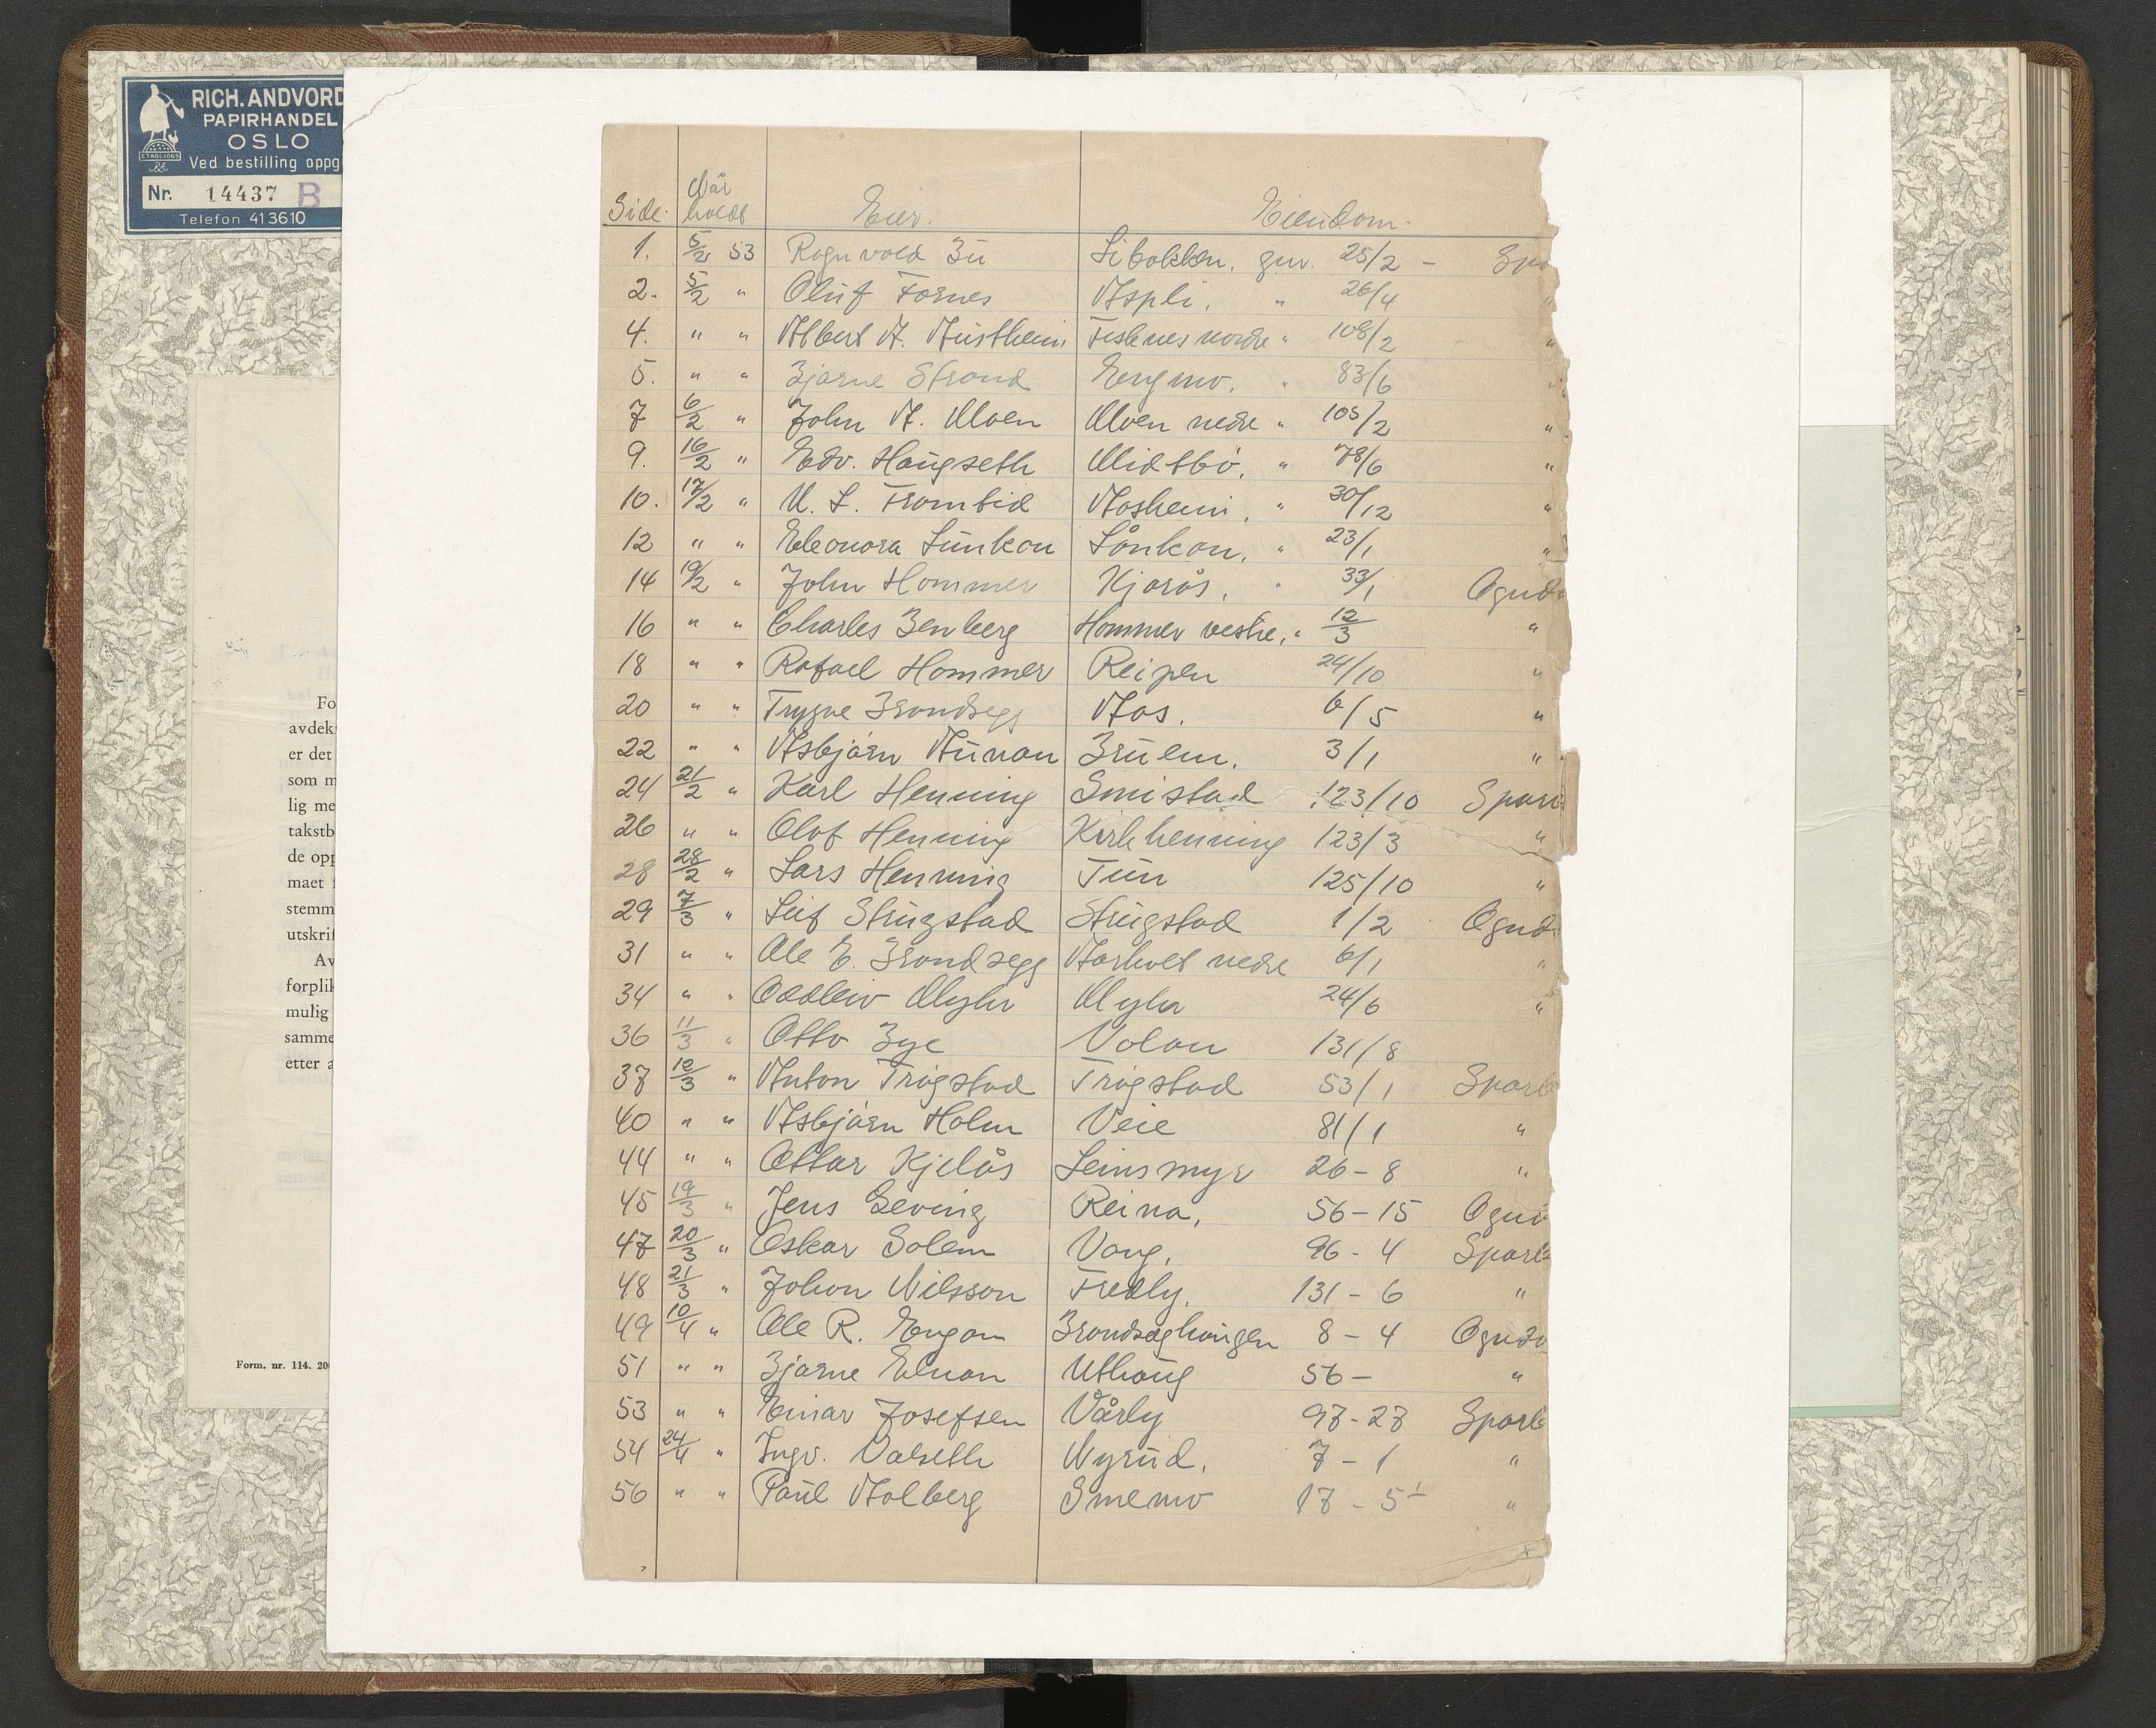 RICH. ANDVORD
PAPIRHANDEL
OSLO
Ved bestilling oppg
Nr. 14437 B
Telefon 413610
Fo
avdek
er det
som m
lig me
takstb
de opp
maet
stemm
utskrif
Av
forplik
mulig
samme
etter a
Form. nr. 114. 20
Side. Når holdt Eier. Eiendom.
1. 5/2 53 Ragnvald Bü Libakken. gnr. 25/2 - Spa
2. 5/2 " Oluf Fornes Aspli. " 26/4 "
4. " " Albert A. Austheim Fisknes nordre " 108/2 "
5. " " Bjarne Strand Engmo. " 83/6 "
7 6/2 " John A. Moen Moen nedre " 105/2 "
9. 16/2 " Edv. Haugseth Midtbö. " 78/6 "
10. 17/2 " M. L. Framtid Aasheim. " 30/12 "
12 " " Eleonora Lunkan Lånkan. " 23/1 "
14 19/2 " John Hammer Kjærås. " 33/1 Ognd
16 " " Charles Benberg Hammer vestre. " 12/3 "
18 " " Rafael Hammer Reipen 24/10 "
20 " " Trygve Brandsegg Aas. 6/5 "
22 " " Asbjørn Aunan Bruem. 3/1 "
24 21/2 " Karl Henning Smistad 123/10 Spar
26 " " Olaf Henning Kirkhenning 123/3 "
28 28/2 " Lars Henning Tun 125/10 "
29 7/3 " Leif Strugstad Strugstad 1/2 Ognd.
31 " " Ole E. Brandsegg Aarholt nedre 6/1 "
34 " " Oddleiv Myhr Myhr 24/6 "
36 11/3 " Otto Bye Volan 131/8
37 12/3 " Anton Trøgstad Trøgstad 53/1 Sparb
40 " " Asbjørn Holm Veie 81/1 "
44 " " Ottar Kjelås Leinsmyr 26-8 "
45 19/3 " Jens Geving Reina. 56-15 Ognd
47 20/3 " Oskar Solem Vang. 96-4 Sparb
48 21/3 " Johan Nilsson Fredly. 131-6 "
49 10/4 " Ole R. Engan Brandsegghaugen 8-4 Ognd
51 " " Bjarne Elnan Uthaug 56- "
53 " " Einar Josefsen Vårly 97-27 Sparb
54 24/4 " Ingv. Valseth Nyrud. 7-1 "
56 " " Paul Aalberg Smemo 17-5 "